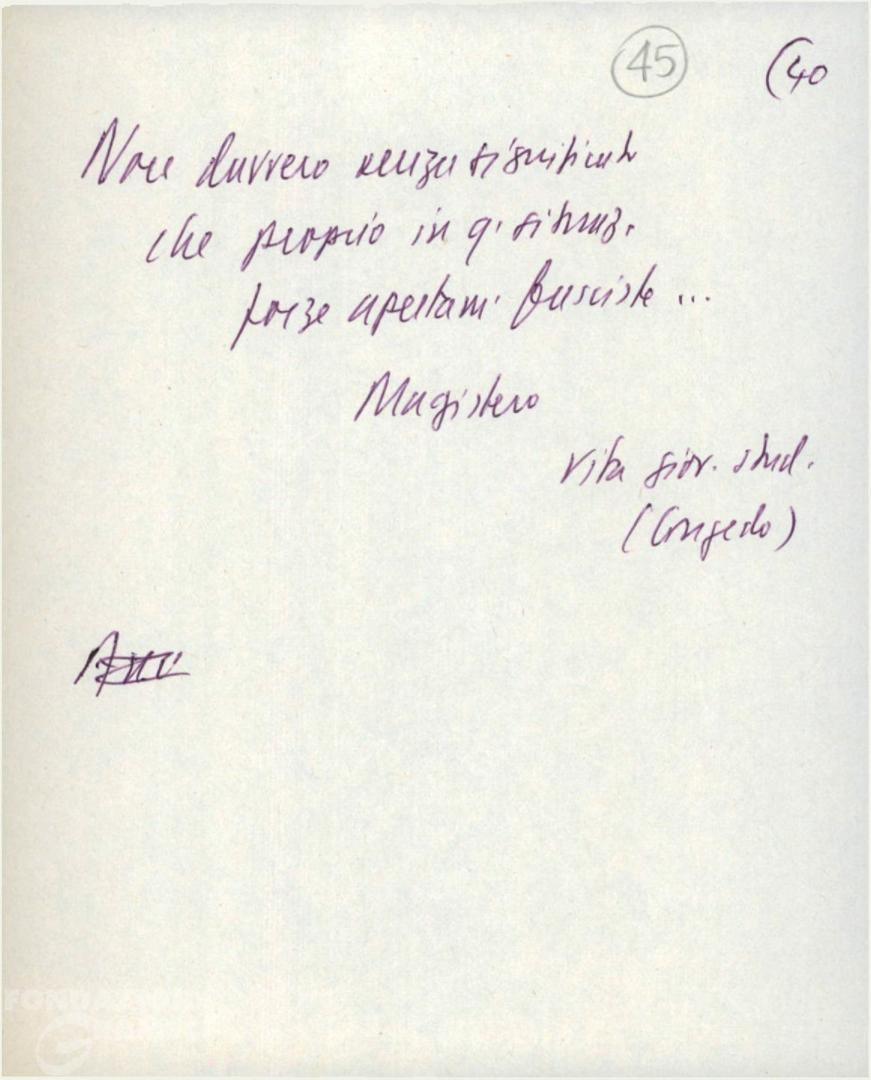 45 (40
Non è davvero senza significato
che proprio in q. situaz.
forze apertam. fasciste ...
Magistero
vita giov. stud.
(Congedo)
FONDAZIONE